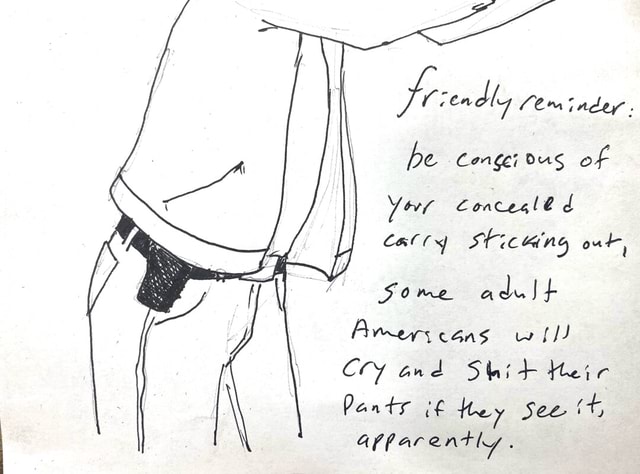 friendly reminder:
be conscious of
your concealed
carry sticking out,
some adult
Americans will
cry and shit their
pants if they see it,
apparently.